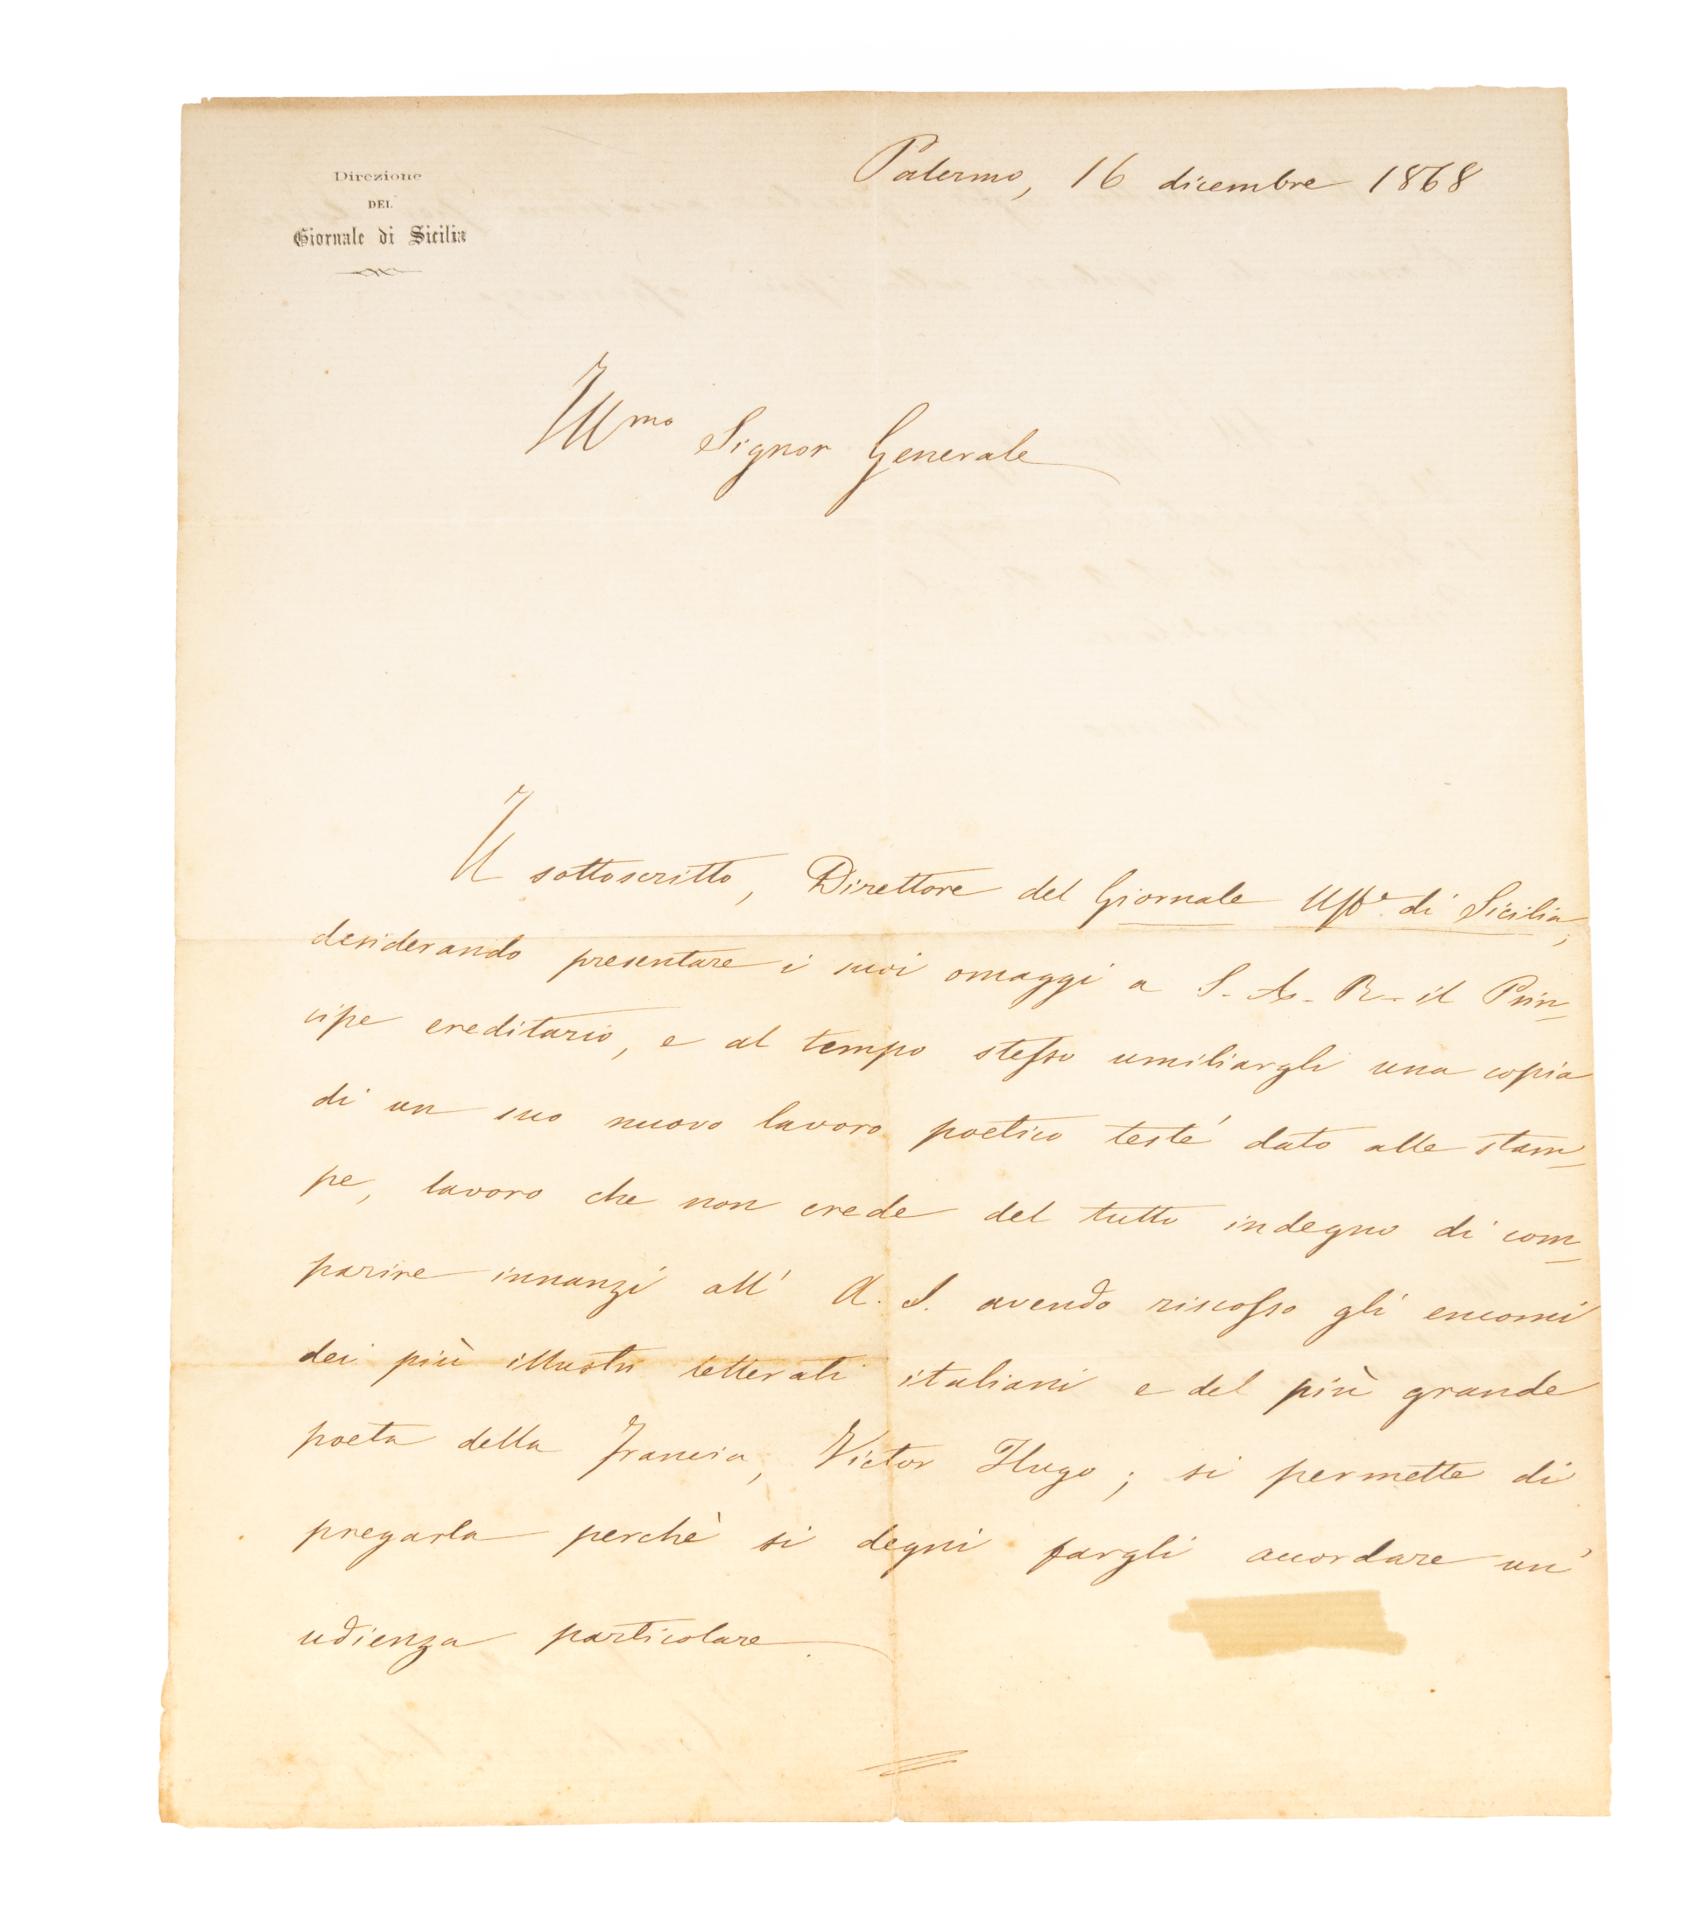 Direzione
DEL
Giornale di Sicilia
Palermo, 16 dicembre 1868
Ill.mo Signor Generale
Il sottoscritto, Direttore del Giornale Uff.e di Sicilia,
desiderando presentare i suoi omaggi a S. A. R. il Prin-
cipe ereditario, e al tempo stesso umiliargli una copia
di un suo nuovo lavoro poetico testé dato alle stam-
pe, lavoro che non crede del tutto indegno di com-
parire innanzi all' A. S. avendo riscosso gli encomi
dei più illustri letterati italiani e del più grande
poeta della Francia, Victor Hugo; si permette di
pregarla perchè si degni fargli accordare un'
udienza particolare.